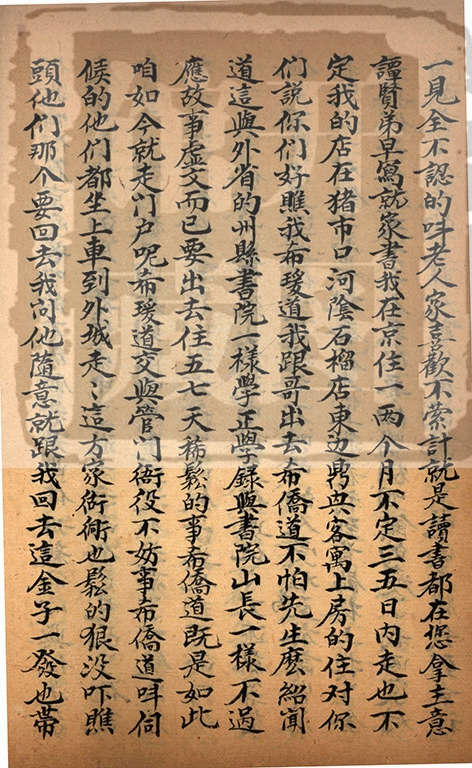 一見全不認的呌老人家喜歡不縈計就是讀書都在您拿主意
譚賢弟早寫就家書我在京住一兩个月不定三五日内走也不
定我的店在猪市口河陰石榴店東边鼎興客寓上房的住对你
们說你们好瞧我希瑗道我跟哥出去希僑道不怕先生麽紹聞
道這與外省的州縣書院一様學正學録與書院山長一様不過
應故事虚文而已要出去住五七天稀鬆的事希僑道既是如此
咱如今就走门户呢希瑗道交與管门衙役不妨事希僑道呌伺
候的他们都坐上車到外城走〻這方家衚衕也鬆的狠没吓瞧
頭他们那个要回去我问他隨意就跟我回去這金子一發也帶